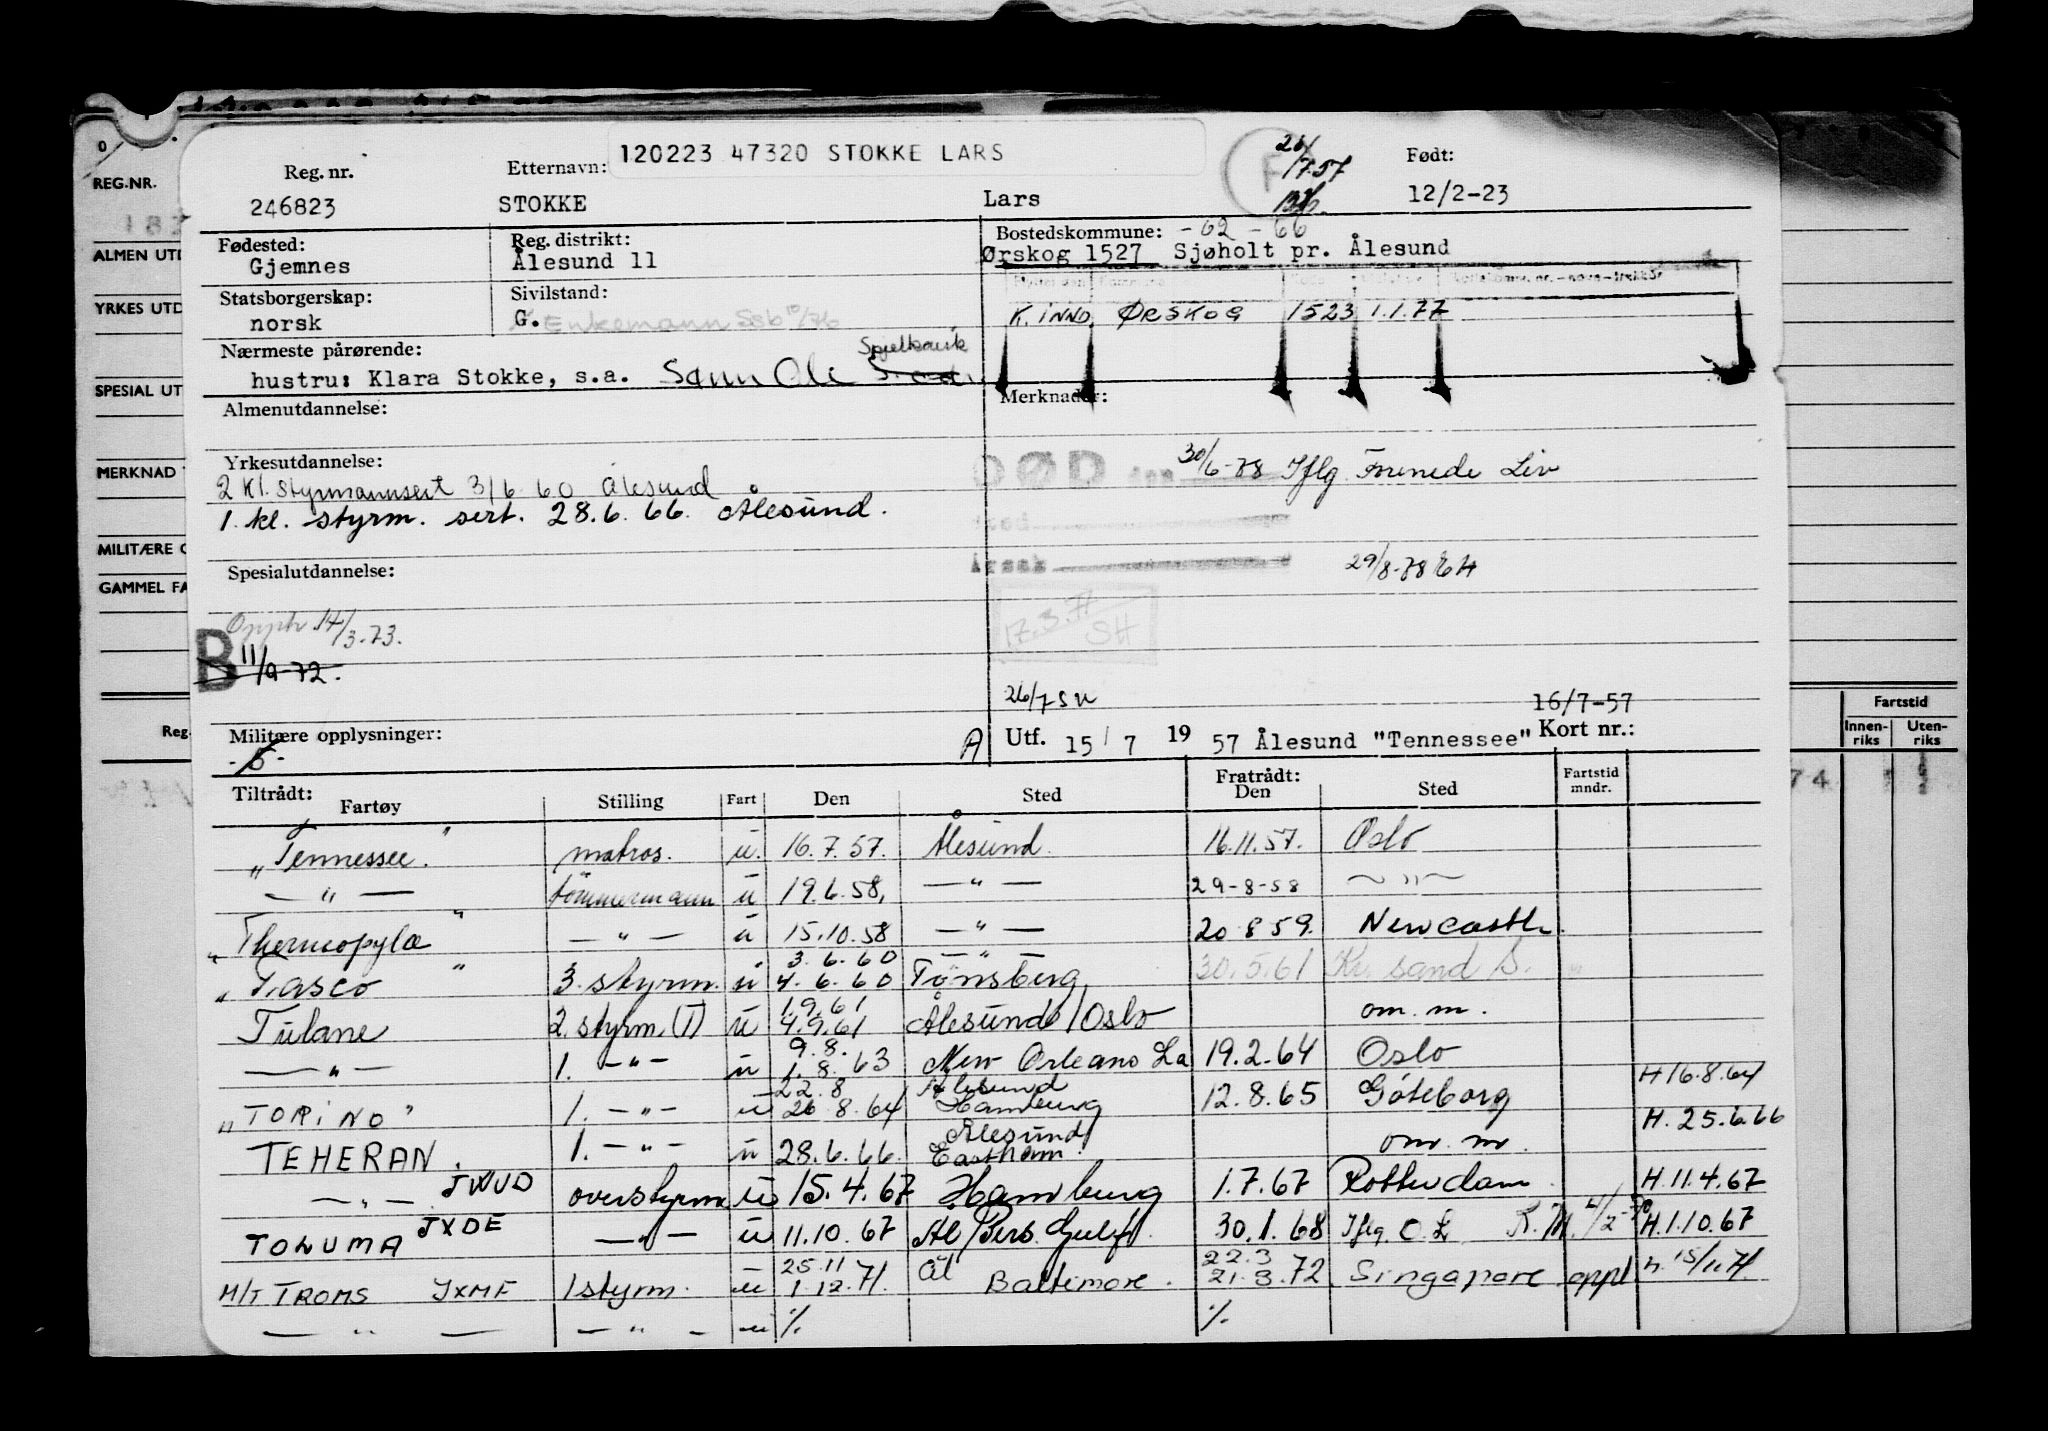 120223 47320 STOKKE LARS
Reg. nr. Etternavn: Født:
246823 STOKKE Lars 12/2-23
Fødested: Reg. distrikt: Bostedskommune: -62-66
Gjemnes Ålesund 11 Ørskog 1527 Sjøholt pr. Ålesund
Statsborgerskap: Sivilstand:
norsk G. Enkemann K. INND. ØRSKOG 1523 1.1.77
Nærmeste pårørende: Spjelkavik
hustru: Klara Stokke, s.a. Sønn Ole
Almenutdannelse: Merknader:
Yrkesutdannelse: DØD den 30/6-78 Iflg. Forenede Liv
2 kl. styrmannsert 3/6 60 Ålesund
1. kl. styrm. sert. 28.6.66. Ålesund.
Sted
Spesialutdannelse: Årsak 29/8-78
17.3.71
SH
Opph 14/3-73.
B 11/9-72.
26/7 16/7-57
Militære opplysninger: A Utf. 15/7 19 57 Ålesund "Tennessee" Kort nr.:
Tiltrådt: Fratrådt:
Fartøy Stilling Fart Den Sted Den Sted Fartstid mndr.
"Tennessee." matros. u. 16.7.57. Ålesund. 16.11.57. Oslo
— " — tømmermann u 19.6.58. — " — 29-8-58 — " —
"Thermopylæ" — " — u 15.10.58 — " — 20.8.59. Newcastle
3.6.60 — " —
"Tasco" 3. styrm. u 4.6.60 Tønsberg 30.5.61 Kr. sand S.
1.9.61
Tulane 2. styrm. (I) u 4.9.61 Ålesund/Oslo om. m.
9.8.
— " — 1. — " — u 1.8.63 New Orleans La 19.2.64 Oslo
22.8 Ålesund H 16.8.64
"TORINO" 1. — " — u 26.8.64 Hamburg 12.8.65 Göteborg
Ålesund H. 25.6.66
TEHERAN. 1. — " — u 28.6.66. Eastham. om. m.
— " — JWUD overstyrm u 15.4.67 Hamburg 1.7.67 Rotterdam H. 11.4.67
TOLUMA JXDE — " — u 11.10.67 Ål/Pers. Gulf. 30.1.68 Iflg. O.L. H. 1.10.67
25.11 Ål 22.3
M/T TROMS JXMF 1 styrm. u 1.12.71. Baltimore. 21.3.72 Singapore oppl h. 15/11.71
— " — — " — u % %
REG.NR.
187
ALMEN UTD
YRKES UTD
SPESIAL UT
MERKNAD
MILITÆRE O
GAMMEL FA
Reg.
Fartstid
Innen-riks Uten-riks
74